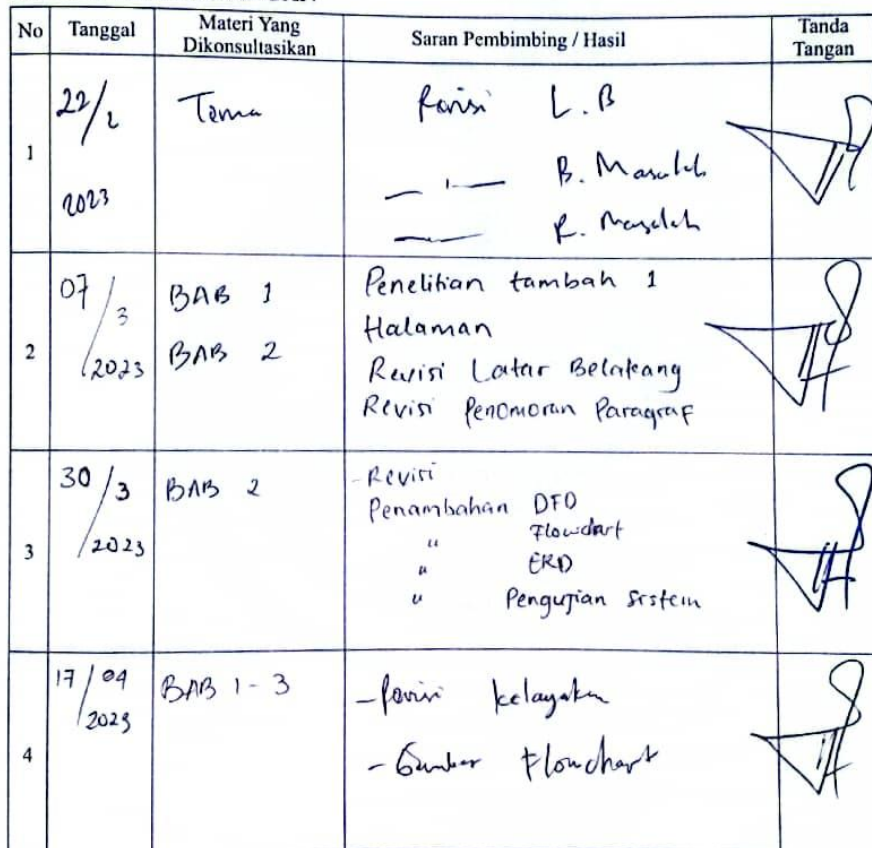 No Tanggal Materi Yang Dikonsultasikan Saran Pembimbing / Hasil Tanda Tangan
1
22/2
2023
Tema
Revisi L.B
— ı — B. Masalah
—— R. Masalah
2
07/3
/2023
BAB 1
BAB 2
Penelitian tambah 1
Halaman
Revisi Latar Belakang
Revisi Penomoran Paragraf
3
30/3
/2023
BAB 2
-Revisi
Penambahan DFD
" Flowchart
" ERD
" Pengujian Sistem
4
17/04
/2023
BAB 1-3
-Revisi kelayakan
-Gambar Flowchart